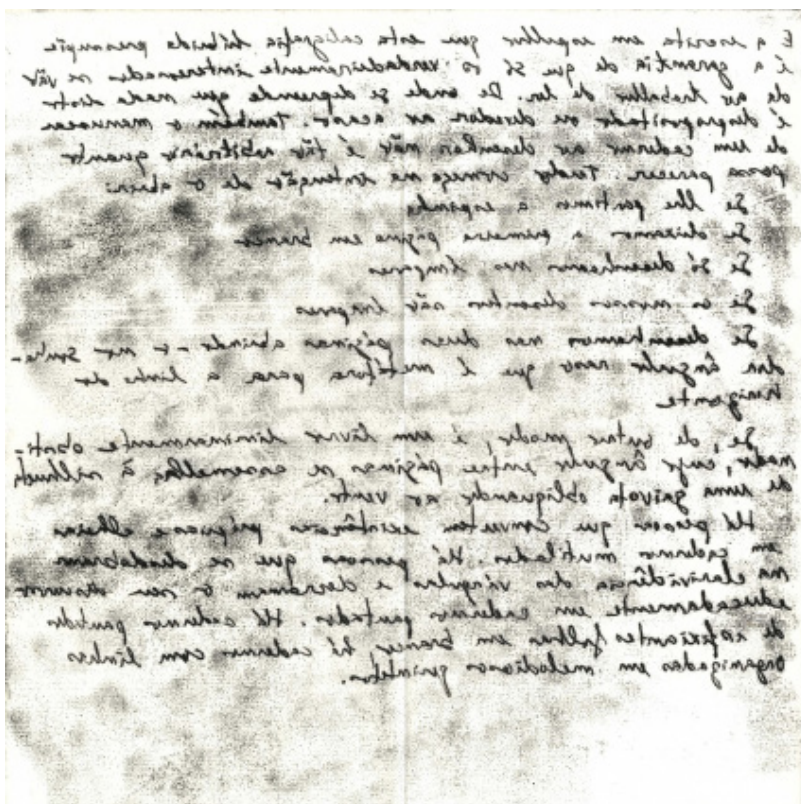 E a escrita em espelho que esta caligrafia híbrida pressupõe
é a garantia de que só os verdadeiramente interessados se vão
dar ao trabalho de ler. De onde se depreende que nada disto
é despropositado ou deixado ao acaso. Também o manusear
de um caderno ao desenhar não é tão arbitrário quanto
possa parecer. Tudo começa na intenção de o abrir.
Se lhe partimos a espinha
Se dizemos a primeira página em branco
Se só desenhamos nas ímpares
Se os nossos desenhos são ímpares
Se desenhamos nas duas páginas abrindo-o no sonha-
dor ângulo raso que é metáfora para a linha do
horizonte
Se, de outro modo, é um livro timidamente obsti-
nado, cujo ângulo entre páginas se assemelha à silhueta
de uma gaivota obliquando ao vento.
Há pessoas que consultam existências próprias e alheias
em cadernos mutilados. Há pessoas que se desdobram
na clarividência das vírgulas e derramam o seu
educadamente em cadernos pautados. Há cadernos pautados
de asfixiantes folhas em branco, há cadernos com linhas
organizadas em melodiosos quintetos.